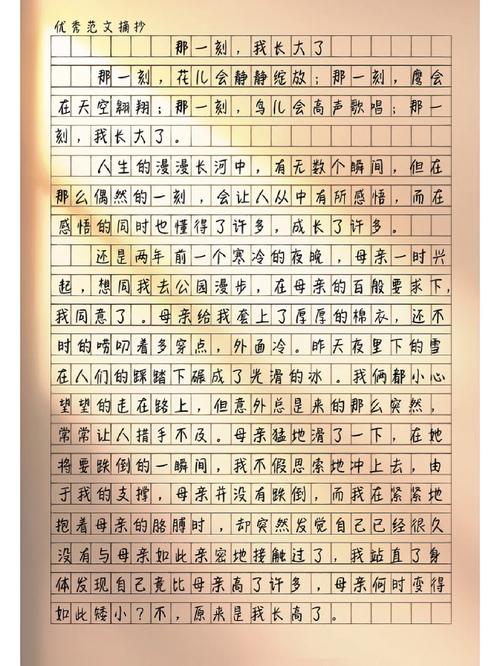 优秀范文摘抄
那一刻，我长大了
那一刻，花儿会静静绽放；那一刻，鹰会
在天空翱翔；那一刻，鸟儿会高声歌唱；那一
刻，我长大了。
人生的漫漫长河中，有无数个瞬间，但在
那么偶然的一刻，会让人从中有所感悟，而在
感悟的同时也懂得了许多，成长了许多。
还是两年前一个寒冷的夜晚，母亲一时兴
起，想同我去公园漫步，在母亲的百般要求下，
我同意了。母亲给我套上了厚厚的棉衣，还不
时的唠叨着多穿点，外面冷。昨天夜里下的雪
在人们的踩踏下碾成了光滑的冰。我俩都小心
望望的走在路上，但意外总是来的那么突然，
常常让人措手不及。母亲猛地滑了一下，在她
将要跌倒的一瞬间，我不假思索地冲上去，由
于我的支撑，母亲并没有跌倒，而我在紧紧地
抱着母亲的胳膊时，却突然发觉自己已经很久
没有与母亲如此亲密地接触过了，我站直了身
体发现自己竟比母亲高了许多，母亲何时变得
如此矮小？不，原来是我长高了。